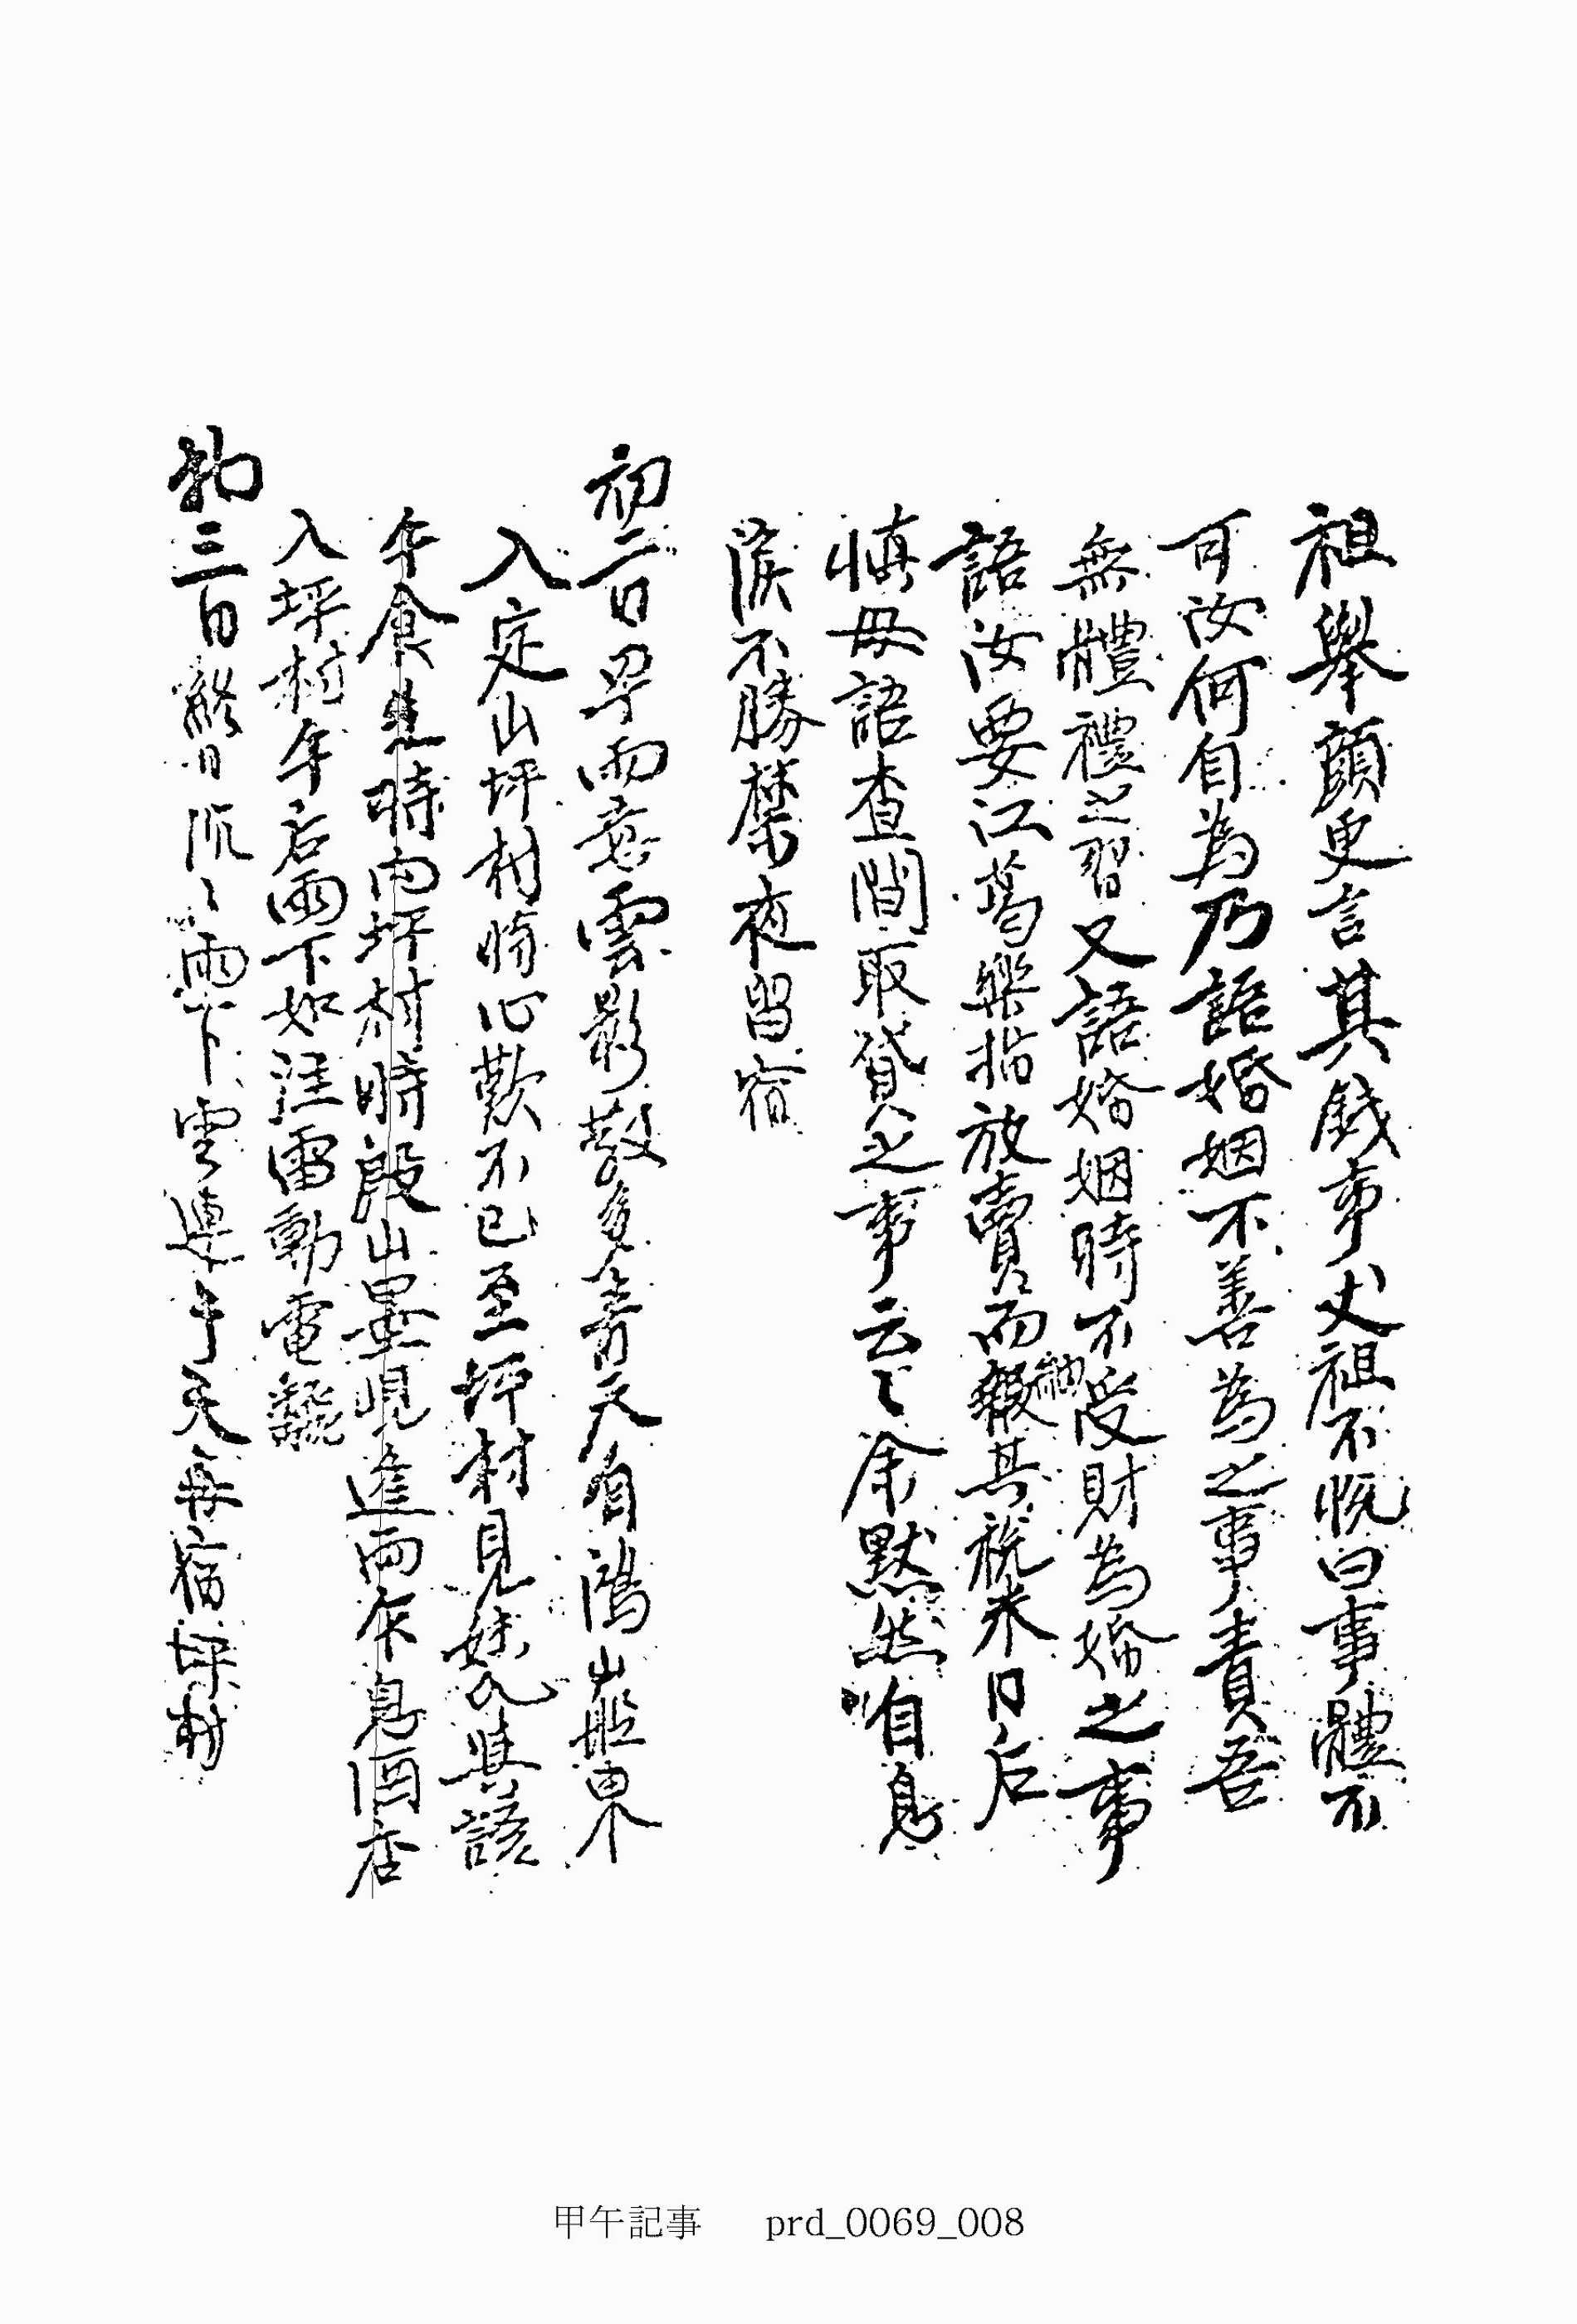 祖擧顔更言其錢事丈祖不悅曰事體不
可汝何自為乃語婚姻不善為之事責吾
無體禮之習又語婚姻時不受財為婚之事
語汝要江萬樂指放賣而報其祝來日后
悔毋語查間取貸之事云〻余默然自息
淚不勝禁夜留宿
初二日早雨意雲影散多靑天自鴻山發界
入定山坪村將心歎不已至坪村見其諺
午食生時內坪村時殷山墨峴進雨作息酒店
入坪村午后雨下如注雷動電飜
初三日終日沉〻雨下雲連于天再宿坪村
甲午記事 prd_0069_008